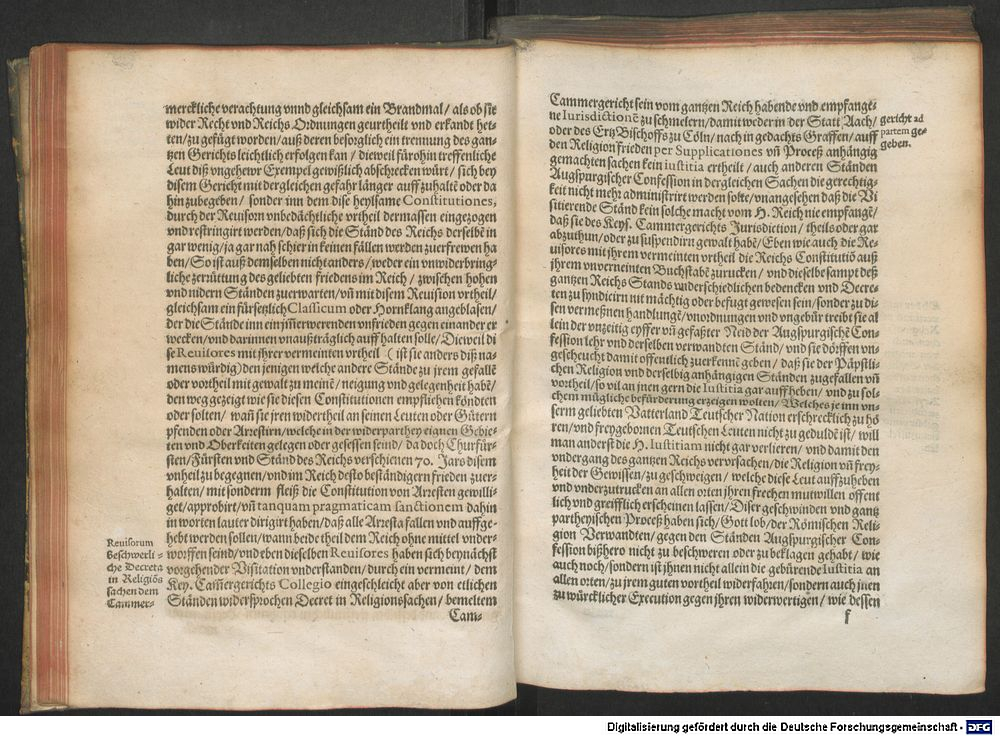 merckliche verachtung vnnd gleichsam ein Brandmal / als ob sie
wider Recht vnd Reichs Ordnungen geurtheilt vnd erkandt het-
ten / zu gefügt worden / auß deren besorglich ein trennung des gan-
tzen Gerichts leichtlich erfolgen kan / dieweil fürohin treffenliche
Leut diß vngehewr Exempel gewißlich abschrecken würt / sich bey
disem Gericht mit dergleichen gefahr länger auffzuhaltē oder da
hin zubegeben / sonder inn dem dise heylsame Constitutiones,
durch der Reuisorn vnbedächtliche vrtheil dermassen eingezogen
vnd restringirt werden / daß sich die Ständ des Reichs derselbē in
gar wenig / ja gar nah schier in keinen fällen werden zuerfrewen ha
ben / So ist auß demselben nicht anders / weder ein vnwiderbring-
liche zerrüttung des geliebten friedens im Reich / zwischen hohen
vnd nidern Ständen zuerwarten / vñ mit disem Reuision vrtheil /
gleichsam ein fürsetzlich Classicum oder Hornklang angeblasen /
der die Stände inn ein jm̄erwerenden vnfrieden gegen einander er
wecken / vnd darinnen vnaußträglich auffhalten solle / Dieweil di
se Reuisores mit jhrer vermeinten vrtheil (ist sie anders diß na-
mens würdig) den jenigen welche andere Stände zu jrem gefallē
oder vortheil mit gewalt zu meinē / neigung vnd gelegenheit habē /
den weg gezeigt wie sie diesen Constitutionen empfliehen köndten
oder solten / wañ sie jren widertheil an seinen Leuten oder Gütern
pfenden oder Arrestirn / welche in der widerparthey eignen Gebie-
ten vnd Oberkeiten gelegen oder gesessen seind / da doch Churfür-
sten / Fürsten vnd Ständ des Reichs verschienen 70. Jars disem
vnheil zu begegnen / vnd im Reich desto beständigern frieden zuer-
halten / mit sonderm fleiß die Constitution von Arresten gewilli-
get / approbirt / vñ tanquam pragmaticam sanctionem dahin
in worten lauter dirigirt haben / daß alle Arresta fallen vnd auffge-
hebt werden sollen / wann beide theil dem Reich ohne mittel vnder-
worffen seind / vnd eben dieselben Reuisores haben sich beynächst
vorgehender Visitation vnderstanden / durch ein vermeint / dem
Key. Cam̄ergerichts Collegio eingeschleicht aber von etlichen
Ständen widersprochen Decret in Religionssachen / bemeltem
Cam-
Reuisorum
Beschwerli-
che Decreta
in Religiōs
sachen dem
Cammer-
Cammergericht sein vom gantzen Reich habende vnd empfange-
ne Iurisdictionē zu schmelern / damit weder in der Statt Aach /
oder des Ertz Bischoffs zu Cöln / nach in gedachts Graffen / auff
den Religion frieden per Supplicationes vñ Proceß anhängig
gemachten sachen kein iustitia ertheilt / auch anderen Ständen
Augspurgischer Confession in dergleichen Sachen die gerechtig-
keit nicht mehr administrirt werden solte / vnangesehen daß die Vi
sitierende Ständ kein solche macht vom H. Reich nie empfangē /
daß sie des Keys. Cammergerichts Jurisdiction / theils oder gar
abzuthun / oder zu suspendirn gewalt habē / Eben wie auch die Re-
uisores mit jhrem vermeinten vrtheil die Reichs Constitutiō auß
jhrem vnverneinten Buchstabē zurucken / vnd dieselbe sampt deß
gantzen Reichs Stands vnderschiedlichen bedencken vnd Decre-
ten zu syndicirn nit mächtig oder befugt gewesen sein / sonder zu di-
sen vermeßnen handlungē / vnordnungen vnd vngebür treibt sie al
lein der vnzeitig eyffer vñ gefaßter Neid der Augspurgischē Con-
fession lehr vnd derselben verwandten Ständ / vnd sie dörffen vn-
gescheucht damit offentlich zuerkennē geben / daß sie der Päpstli-
chen Religion vnd derselbig anhängigen Ständen zugefallen vñ
vortheil / so vil an jnen gern die Iustitia gar auffheben / vnd zu sol-
chem mügliche befürderung erzeigen wolten / Welches je inn vn-
serm geliebten Vatterland Teutscher Nation erschrecklich zu hö
ren / vnd freygebornen Teutschen Leuten nicht zu geduldē ist / will
man anderst die H. Iustitiam nicht gar verlieren / vnd damit den
vndergang des gantzen Reichs vervrsachen / die Religion vñ frey-
heit der Gewissen / zu geschweigen / welche diese Leut auffzuheben
vnd vnderzutrucken an allen orten jhren frechen mutwillen offent
lich vnd greifflich erscheinen lassen / Diser geschwinden vnd gantz
partheyischen Proceß haben sich / Gott lob / der Römischen Reli-
gion Verwandten / gegen den Ständen Augspurgischer Con-
fession bißhero nicht zu beschweren oder zu beklagen gehabt / wie
auch noch / sondern ist jhnen nicht allein die gebürende Iustitia an
allen orten / zu jrem guten vortheil widerfahren / sondern auch jnen
zu würcklicher Execution gegen jhren widerwertigen / wie dessen
f
gericht ad
partem ge-
geben.
Digitalisierung gefördert durch die Deutsche Forschungsgemeinschaft - DFG